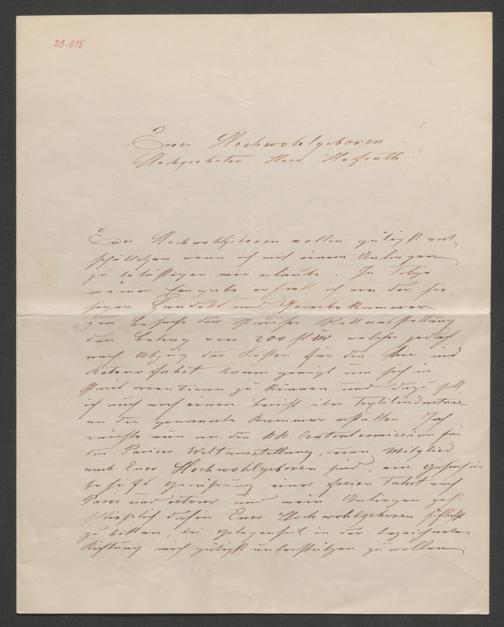 23.015
Euer Hochwohlgeboren!
Hochgeehrter Herr Hofrath!
Euer Hochwohlgeboren wollen gütigst ent-
schuldigen wenn ich mit einem Anliegen
zu belästigen mir erlaube. In Folge
meiner Eingabe erhielt ich von der hie-
sigen Handels und Gewerbekammer
zum Besuche der Pariser Weltausstellung
den Betrag von 200 fl welcher jedoch
nach Abzug der Kosten für die Hin und
kaum genügt um sich in
Paris orientiren zu können und dazu soll
ich auch noch einen Bericht über Textilindustrie
an die genannte Kammer erstatten. Ich
reichte nun an die k.k. Centralcommission für
die Pariser Weltausstellung, deren Mitglied
auch Euer Hochwohlgeboren sind, ein Gesuch um
einer freien Fahrt nach
Paris und retour und mein Anliegen geht
schließlich dahin Euer Hochwohlgeboren
zu bitten, bei Gelegenheit in der bezeichneten
Richtung mich gütigst unterstützen zu wollen.